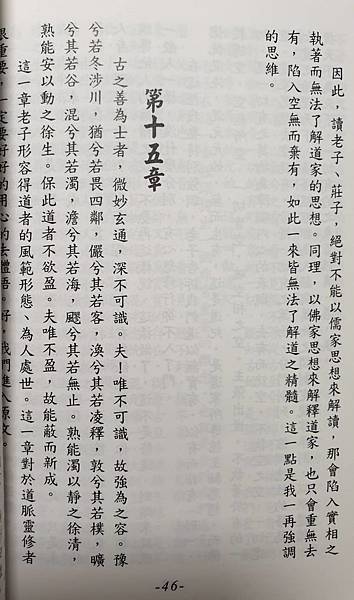 因此，讀老子、莊子，絕對不能以儒家思想來解讀，那會陷入實相之
執著而無法了解道家的思想。同理，以佛家思想來解釋道家，也只會重無去
有，陷入空無而棄有，如此一來皆無法了解道之精髓。這一點是我一再強調
的思維。
第十五章
古之善為士者，微妙玄通，深不可識。夫！唯不可識，故強為之容。豫
兮若冬涉川，猶兮若畏四鄰，儼兮其若客，渙兮其若凌釋，敦兮其若樸，曠
兮其若谷，混兮其若濁，澹兮其若海，飂兮其若無止。熟能濁以靜之徐清，
熟能安以動之徐生。保此道者不欲盈。夫唯不盈，故能蔽而新成。
這一章老子形容得道者的風範形態、為人處世。這一章對於道脈靈修者
很重要，一定要好好的用心的去體悟。好，我們進入原文。
-46-